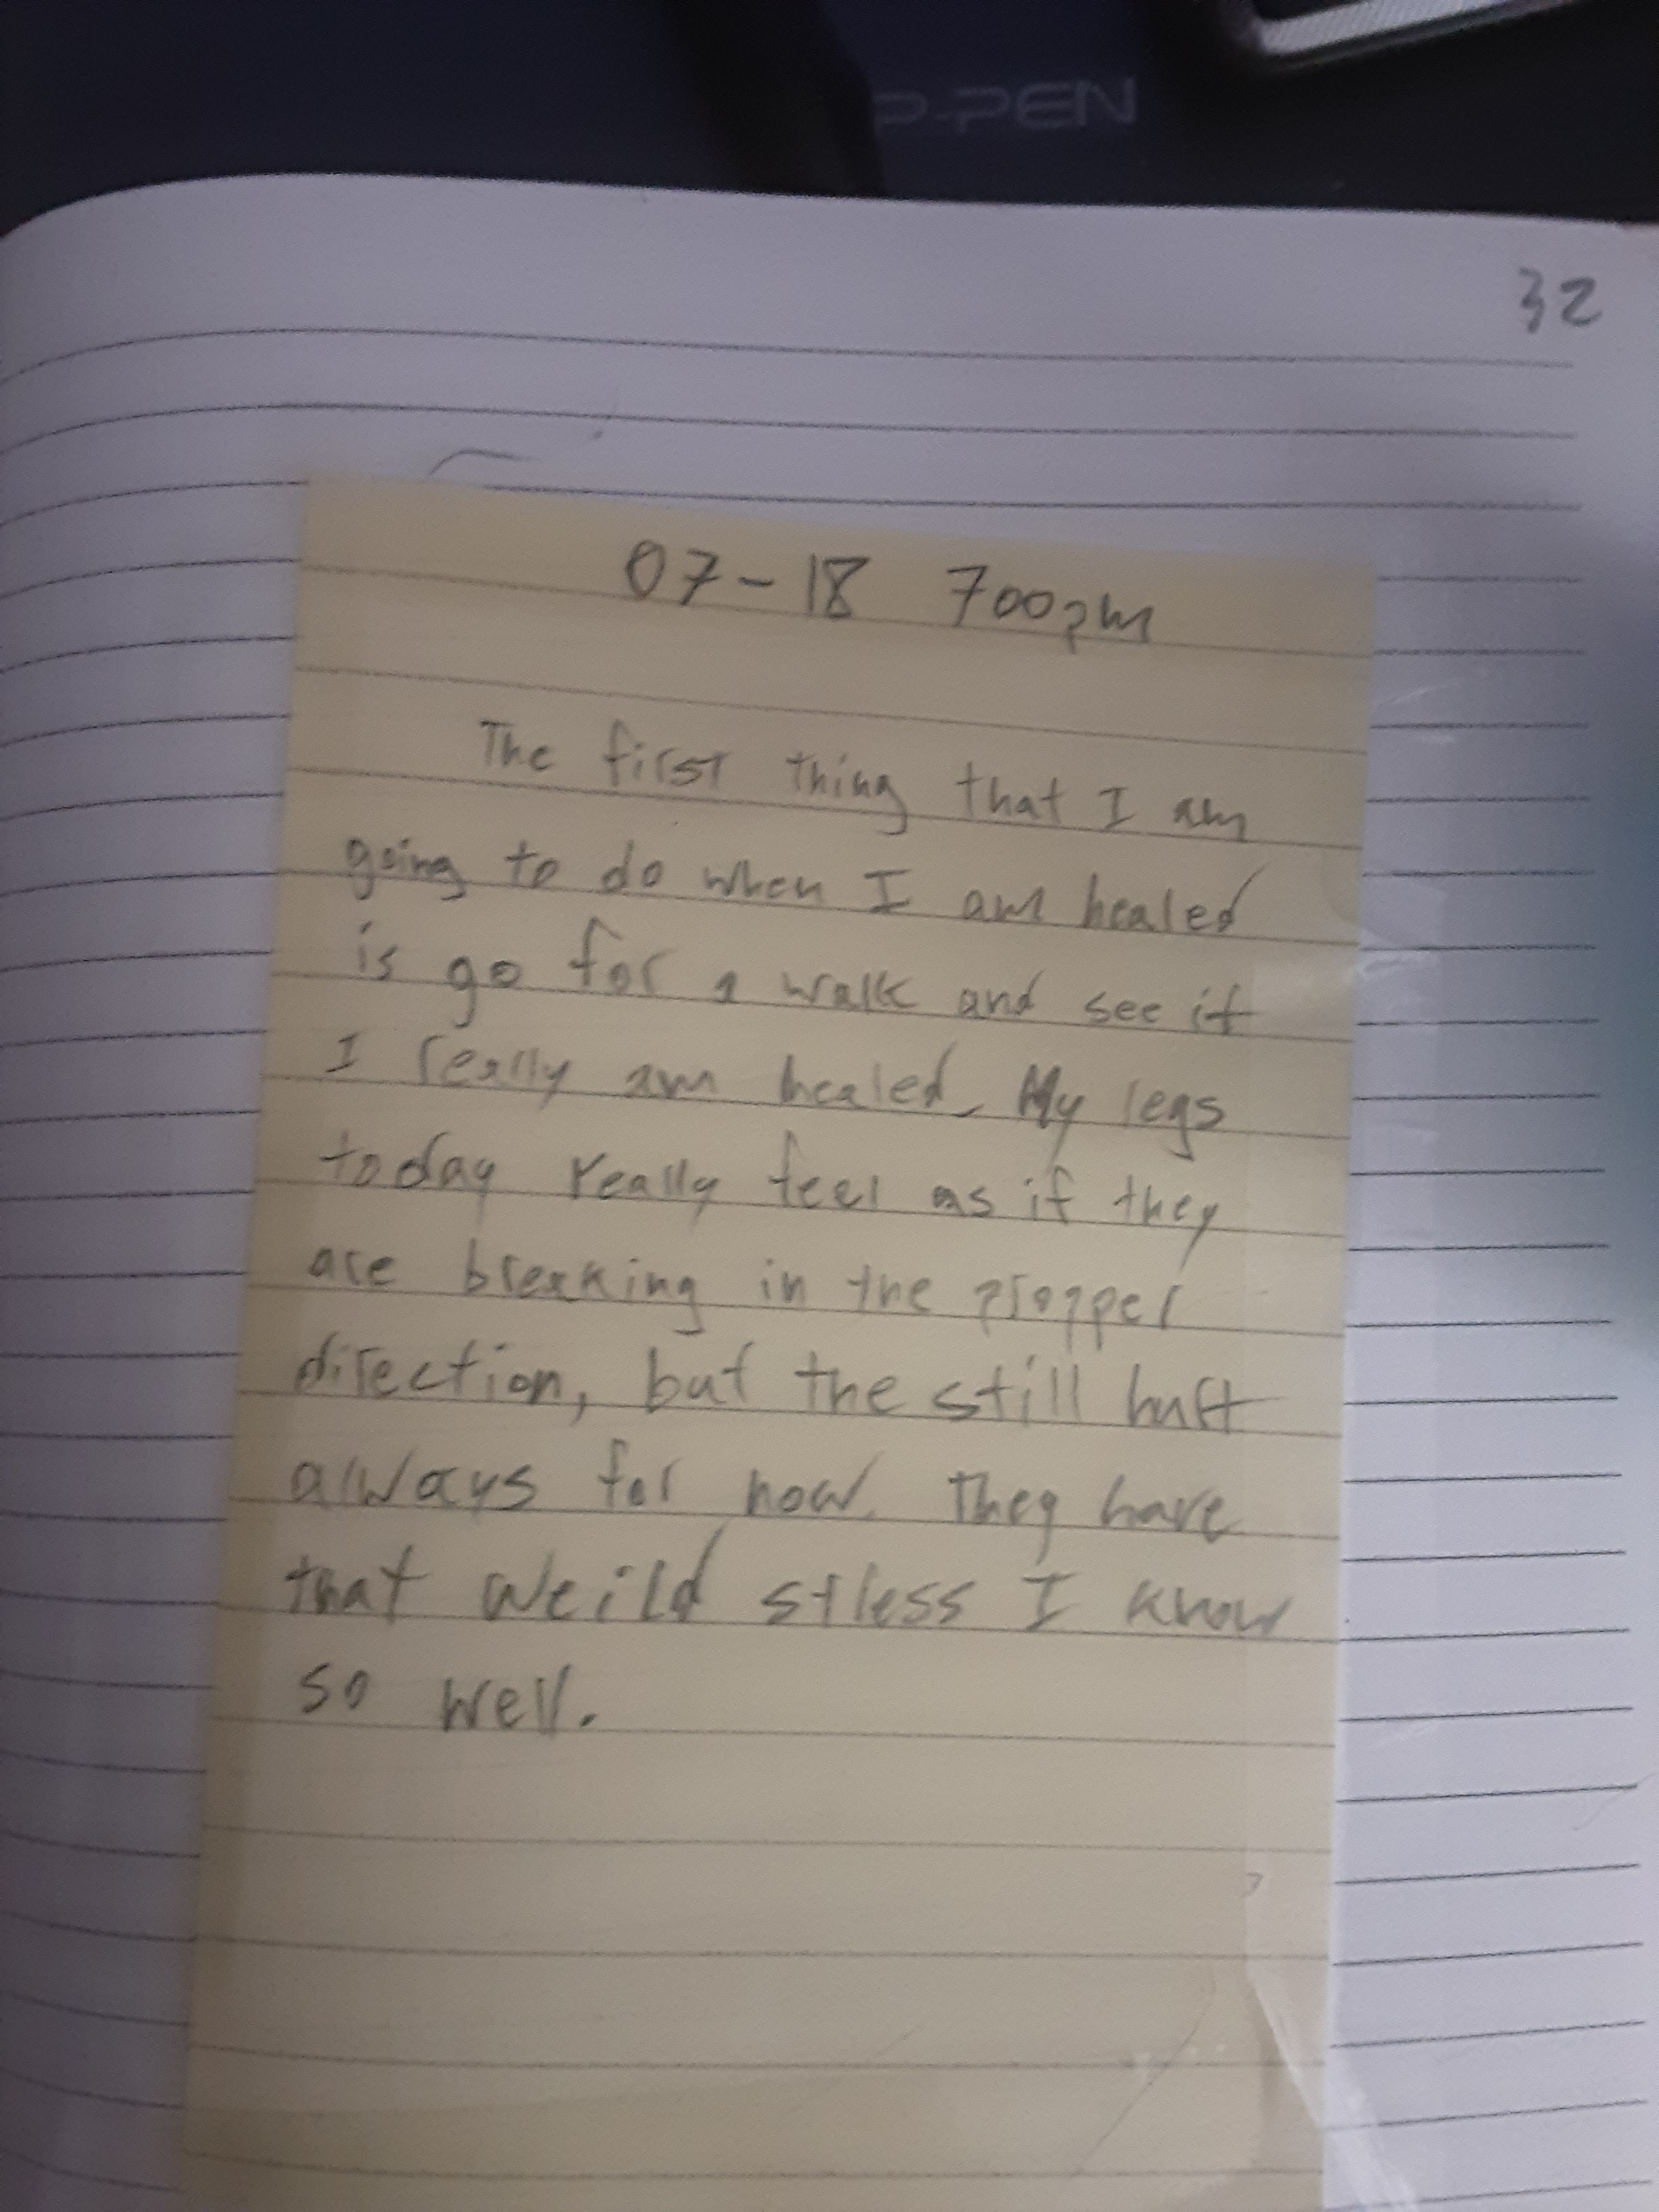 P-PEN
32
07-18 700pm
The first thing that I am
going to do when I am healed
is go for a walk and see if
I really am healed. My legs
today really feel as if they
are breaking in the propper
direction, but the still hurt
always for now. They have
that weird stress I know
so well.